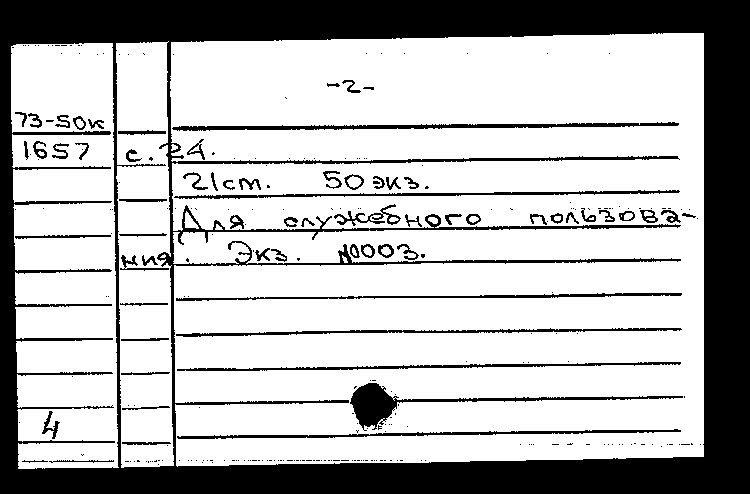 -2-
73-50к
1657 с. 24.
21см. 50 экз.
Для служебного пользова-
ния. Экз. №003.
4